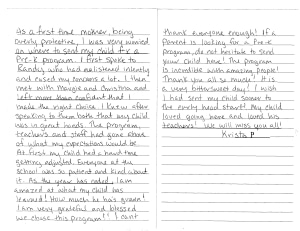 As a first time mother, being
overly protective, I was very worried
on where to send my child for a
Pre-K program. I first spoke to
Randy who had listened intently
and eased my concerns a lot. I then
met with Margie and Christina and
left more than confident that I
made the right choice. I knew after
speaking to them both that my child
was in great hands. The program,
teachers and staff had gone above
of what my expectations would be.
At first my child had a hard time
getting adjusted. Everyone at the
school was so patient and kind about
it. As the year has ended, I am
amazed at what my child has
learned! How much he has grown!
I am very grateful and blessed
we chose this program!! I can't
thank everyone enough! If a
parent is looking for a Pre-K
program, do not hesitate to send
your child here! The program
is incredible with amazing people!
Thank you all so much! It is
a very bittersweet day! I wish
I had sent my child sooner to
the early head start! My child
loved going here and loved his
teachers! We will miss you all!
Krista P